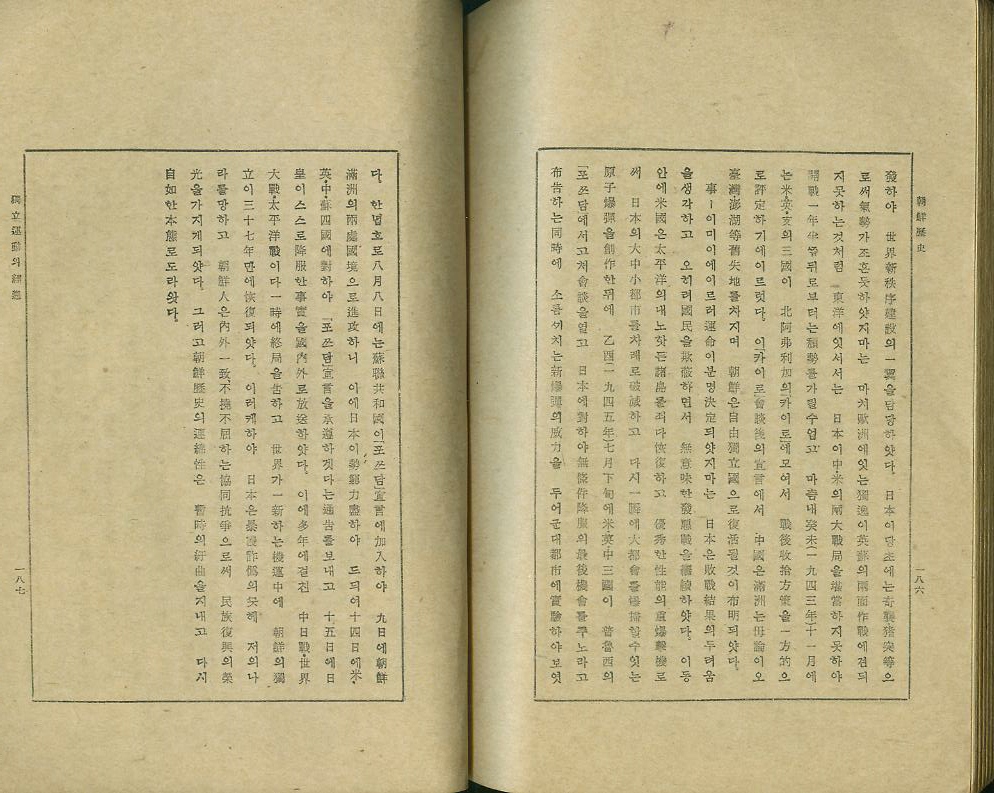 朝鮮歷史
發하야 世界新秩序建設의 一翼을 담당하얏다. 日本이 당초에는 奇襲猪突等으
로써 氣勢가 조흔듯하얏지마는 마치 歐洲에잇는 獨逸이 英蘇의 兩面作戰에 견듸
지못하는것처럼 東洋에잇서서는 日本이 中·米의 兩大戰局을 堪當하지못하야
開戰一年 뒤로부터는 頹勢를 가릴수업고 마츰내 癸未(一九四三年)十一月에
는 米·英·支의 三國이 北阿弗利加의「카이로」에 모여서 戰後收拾方策을 一方的으
로 評定하기에 이르럿다. 이「카이로」會談後의 宣言에서 中國은 滿洲는 毋論이오
臺灣澎湖等舊失地를 차지며 朝鮮은 自由獨立國으로 復活될것이 布明되얏다.
事ㅣ이미 이에이르러 運命이 분명 決定되얏지마는 日本은 敗戰結果의 두려움
을 생각하고 오히려 國民을 欺蔽하면서 無意味한 發惡戰을 繼續하얏다. 이동
안에 米國은 太平洋의 대노핫든 諸島를 죄다 恢復하고 優秀한 性能의 重爆擊機로
써 日本의 大中小都市를 차례로 破滅하고 다시 一瞬에 大都會를 爆擄할수잇는
原子爆彈을 創作한뒤에 乙酉(一九四五年)七月下旬에 米英中三國이 普魯西의
「포쓰담」에서 고쳐 會談을열고 日本에 對하야 無條件降服의 最後機會를 주노라고
布告하는同時에 소름 씨치는 新爆彈의 威力을 두어군대都市에 實驗하야보엿
一八六
다. 한녑흐로 八月八日에는 蘇聯共和國이「포쓰담」宣言에 加入하야 九日에 朝鮮
滿洲의 兩處國境으로 進攻하니 이에 日本이 勢窮力盡하야 드듸어 十四日에 米·
英·中·蘇四國에 對하야「포쓰담」宣言을 承遵하겟다는 通告를 보내고 十五日에 日
皇이 스스로 降服한事實을 國內外로 放送하얏다. 이에 多年에걸친 中日戰·世界
大戰·太平洋戰이 다 一時에 終局을 告하고 世界가 一新하는 機運中에 朝鮮의 獨
立이 三十七年만에 恢復되얏다. 이러케하야 日本은 暴慢詐僞의 갓헤 저의나
라를망하고 朝鮮人은 內外一致, 不撓不屈하는 協同抗爭으로써 民族復興의 榮
光을 가지게되얏다. 그러고 朝鮮歷史의 連綿性은 暫時의 紆曲을지내고 다시
自如한 本態로 도라왓다.
獨立運動의 經過
一八七